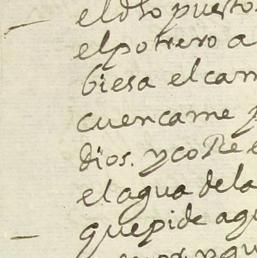 el dho puesto
el potrero a
biesa el cam
cuencame y
dios. y coRe e
el agua dela
que pide agu